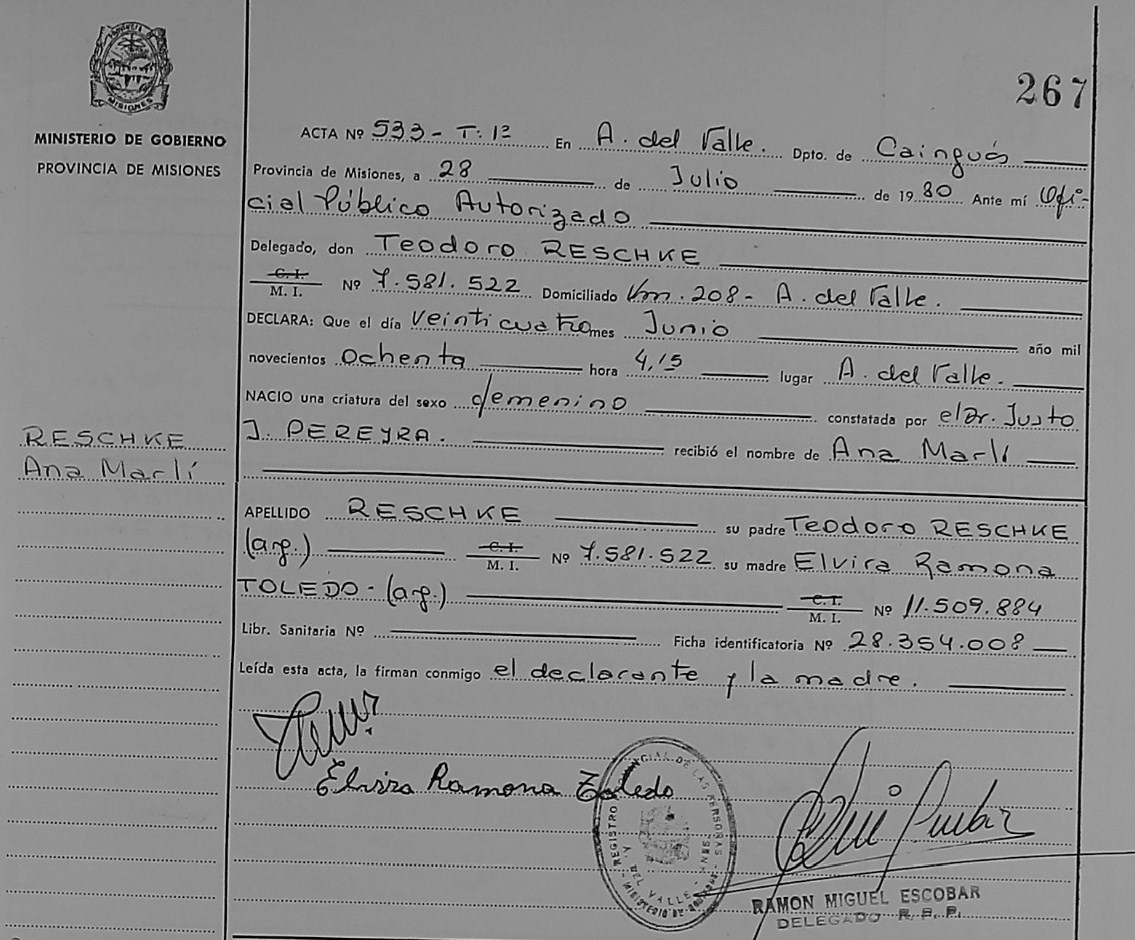 MISIONES
267
MINISTERIO DE GOBIERNO
PROVINCIA DE MISIONES
ACTA Nº 533 - T: 1º En A. del Valle. Dpto. de Cainguás
Provincia de Misiones, a 28 de Julio de 1980 Ante mí Ofi-
cial Público Autorizado
Delegado, don Teodoro RESCHKE
C. I.
M. I. Nº 7.581.522 Domiciliado Km. 208 - A. del Valle.
DECLARA: Que el día veinticuatro mes Junio año mil
novecientos ochenta hora 4,15 lugar A. del Valle.
NACIO una criatura del sexo femenino constatada por el Dr. Justo
J. PEREYRA. recibió el nombre de Ana Marlí
RESCHKE
Ana Marlí
APELLIDO RESCHKE su padre Teodoro RESCHKE
(arg.) C. I.
M. I. Nº 7.581.522 su madre Elvira Ramona
TOLEDO - (arg.) C. I.
M. I. Nº 11.509.884
Libr. Sanitaria Nº Ficha identificatoria Nº 28.354.008
Leída esta acta, la firman conmigo el declarante y la madre.
Elvira Ramona Toledo
REGISTRO PROVINCIAL DE LAS PERSONAS
DEL VALLE - MNES
RAMON MIGUEL ESCOBAR
DELEGADO R. P. P.